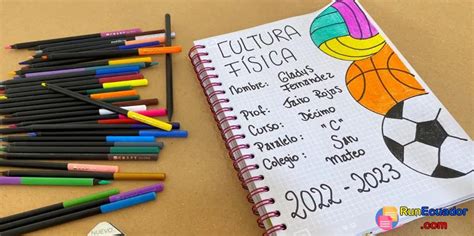 CULTURA
FÍSICA
Nombre: Gladys
Fernandez
Prof: Jairo Rojas
Curso: Décimo
Paralelo: "C"
Colegio: San
Mateo
2022 - 2023
NUEVO
RunEcuador
.com